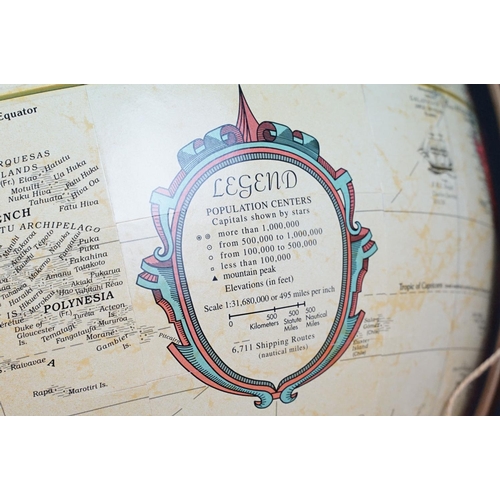 Equator
RQUESAS
LANDS
(Fr.) Eiao
Hatutu
Motuiti
Ua Huka
Nuku Hiva
Hiva Oa
Tahuata
Fatu Hiva
ENCH
TU ARCHIPELAGO
Fakahina
Tatakoto
Amanu
Akiaki
Pukarua
Reao
POLYNESIA
Duke of
Gloucester
Is.
Tureia
Acteon
Is.
Tematangi
Mururoa
Fangataufa
Morane
Maria
Gambier
Is.
Pitcairn
Raivavae
A
Rapa
Marotiri Is.
LEGEND
POPULATION CENTERS
Capitals shown by stars
more than 1,000,000
from 500,000 to 1,000,000
from 100,000 to 500,000
less than 100,000
mountain peak
Elevations (in feet)
Scale 1:31,680,000 or 495 miles per inch
0 500 500 500
Kilometers Statute Nautical
Miles Miles
6,711 Shipping Routes
(nautical miles)
Tropic of Capricorn